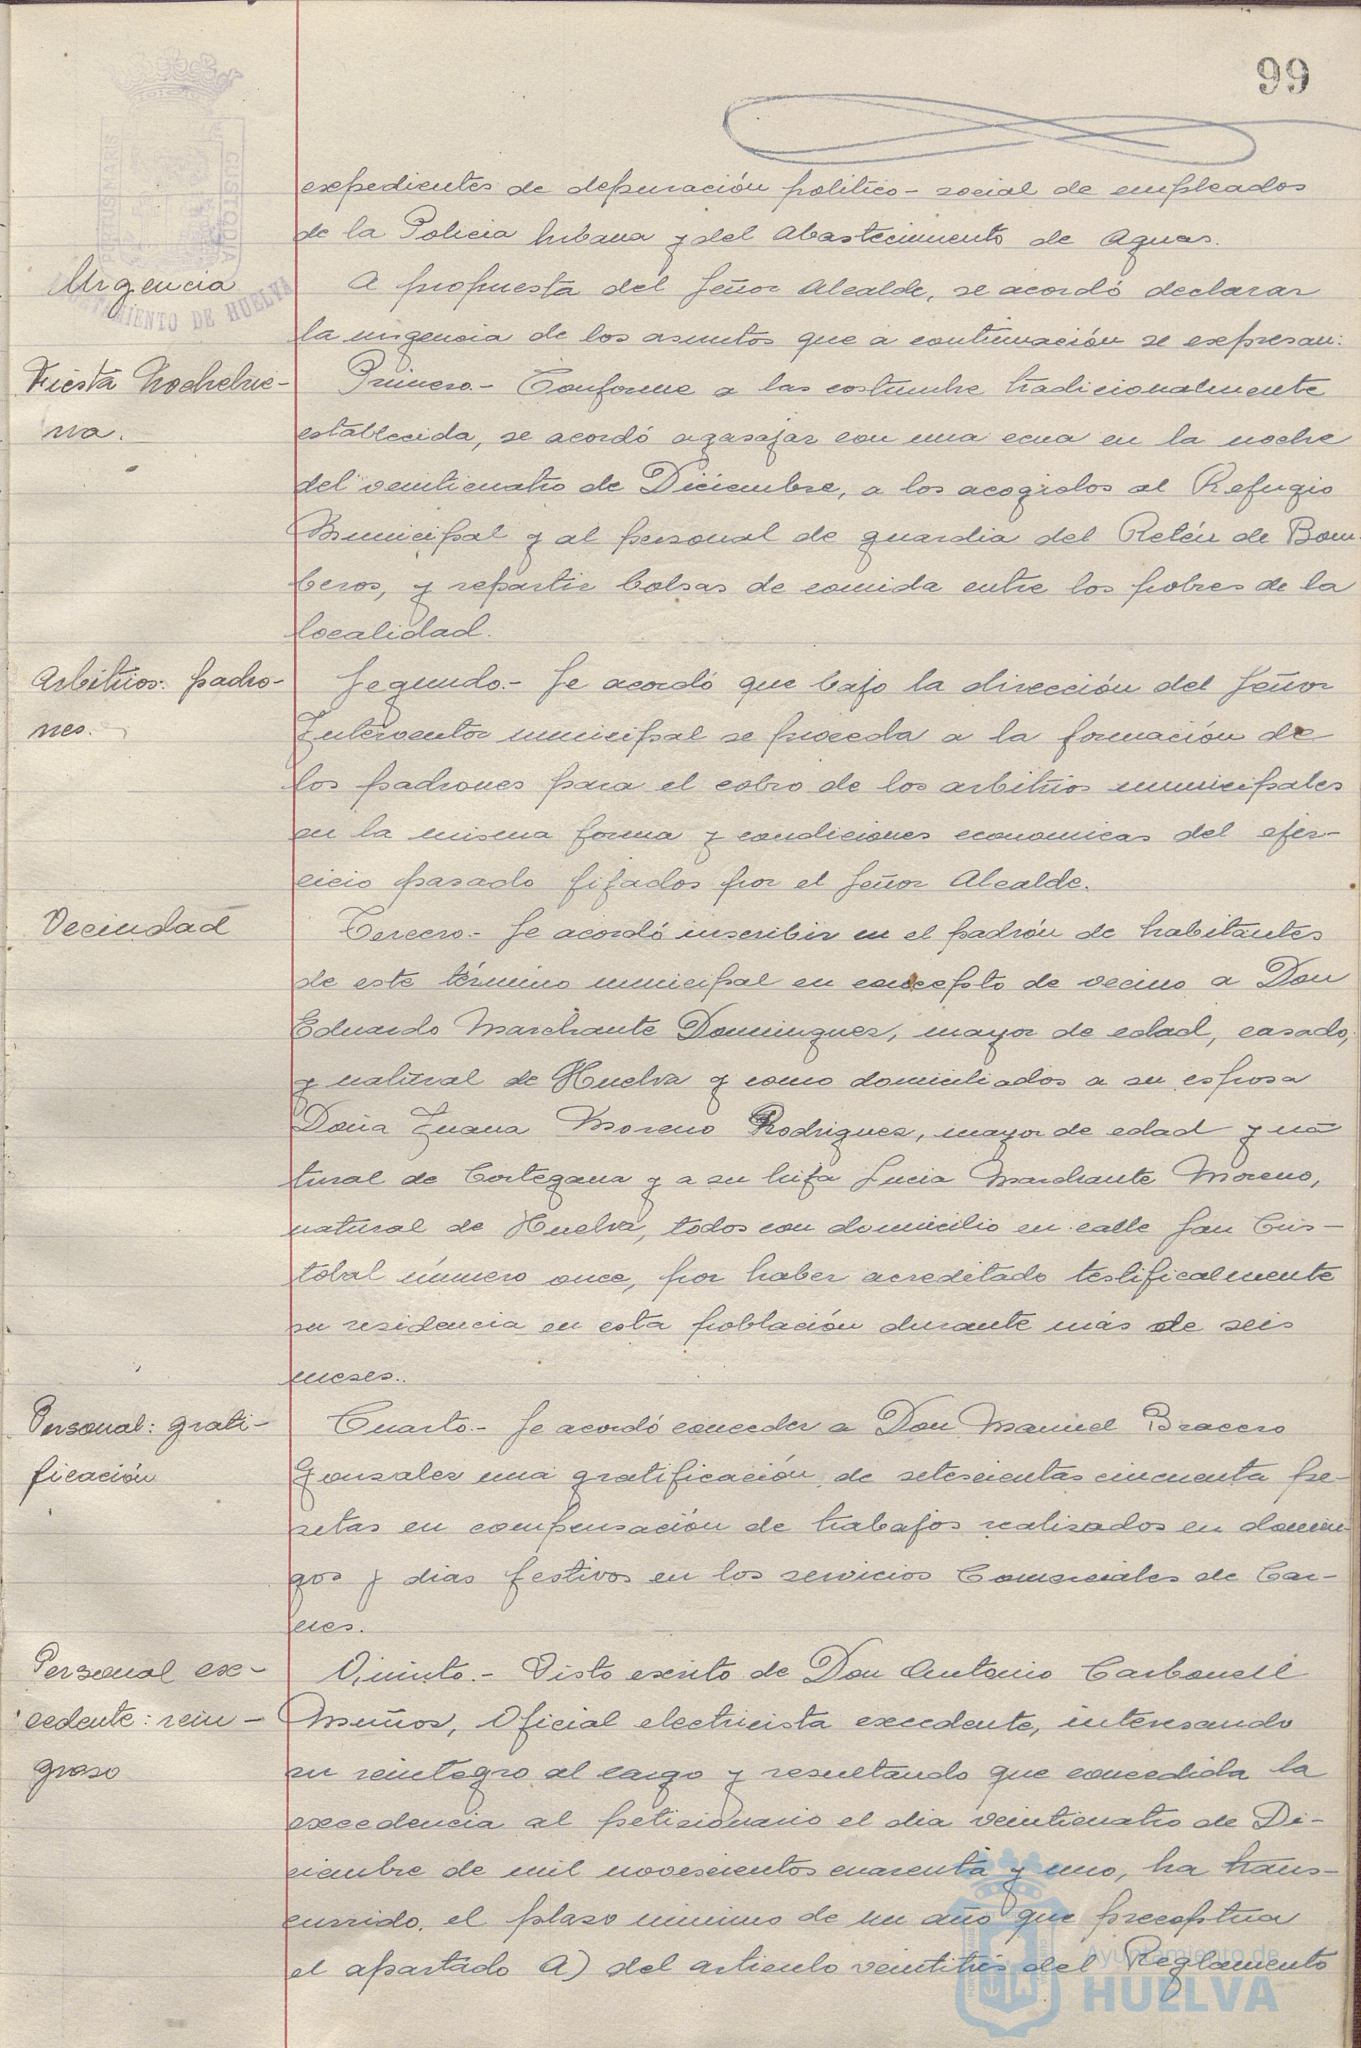 99
PORTUS MARIS
CUSTODIA
AYUNTAMIENTO DE HUELVA
expedientes de depuración político-social de empleados
de la Policia Urbana y del Abastecimiento de Aguas.
Urgencia
A propuesta del Señor Alcalde, se acordó declarar
la urgencia de los asuntos que a continuación se expresan:
Fiesta Nochebue-
na.
Primero.- Conforme a las costumbre tradicionalmente
establecida, se acordó agasajar con una cena en la noche
del veinticuatro de Diciembre, a los acogidos al Refugio
Municipal y al personal de guardia del Retén de Bom-
beros, y repartir bolsas de comida entre los pobres de la
localidad.
Arbitrios: padro-
nes.
Segundo.- Se acordó que bajo la dirección del Señor
Interventor municipal se proceda a la formación de
los padrones para el cobro de los arbitrios municipales
en la misma forma y condiciones economicas del ejer-
cicio pasado fijados por el Señor Alcalde.
Vecindad
Tercero.- Se acordó inscribir en el padrón de habitantes
de este término municipal en concepto de vecino a Don
Eduardo Marchante Dominguez, mayor de edad, casado,
y natural de Huelva y como domiciliados a su esposa
Doña Juana Moreno Rodriguez, mayor de edad y na
tural de Cortegana y a su hija Lucia Marchante Moreno,
natural de Huelva, todos con domicilio en calle San Cris-
tobal número once, por haber acreditado testificalmente
su residencia en esta población durante más de seis
meses.
Personal: grati-
ficación
Cuarto.- Se acordó conceder a Don Manuel Bracero
Gonzalez una gratificación de setescientas cincuenta pe-
setas en compensación de trabajos realizados en domin-
gos y dias festivos en los servicios Comerciales de Car-
nes.
Personal ex-
cedente: rein-
greso
Quinto.- Visto escrito de Don Antonio Carbonell
Muñoz, Oficial electricista excedente, interesando
su reintegro al cargo y resultando que concedida la
excedencia al peticionario el dia veinticuatro de Di-
ciembre de mil novescientos cuarenta y uno, ha trans-
currido el plazo minimo de un año que preceptua
el apartado A) del articulo veintitrés del Reglamento
Ayuntamiento de
HUELVA